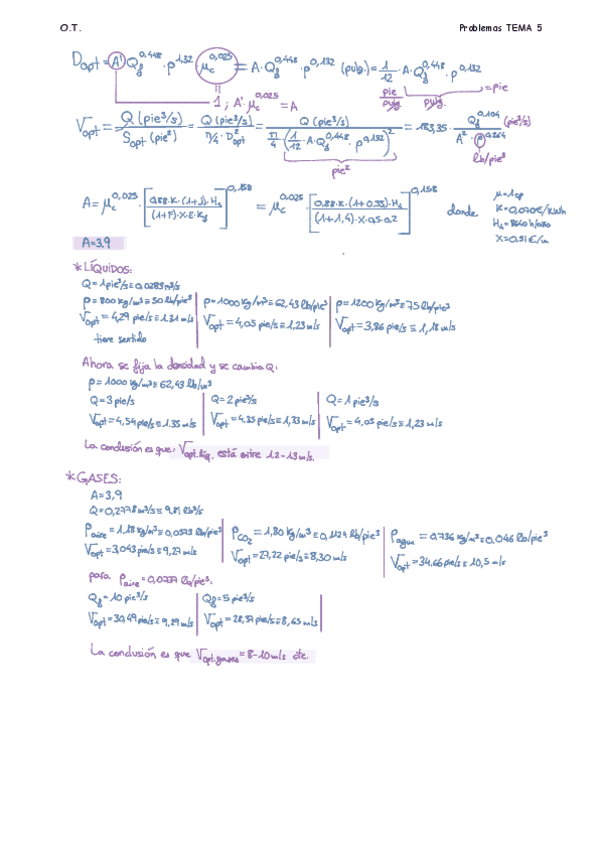 O.T. Problemas TEMA 5
Dopt = A' Qf^0,448 · ρ^0,132 μc^0,025 = A · Qf^0,448 · ρ^0,132 (pulg.) = 1/12 · A · Qf^0,448 · ρ^0,132
pie/pulg. pulg. = pie
1 ; A' · μc^0,025 = A
Vopt = Q (pie³/s) / Sopt (pie²) = Q (pie³/s) / (π/4 · D²opt) = Q (pie³/s) / (π/4 (1/12 · A · Qf^0,448 · ρ^0,132)²) = 183,35 · Qf^0,104 / (A² · ρ^0,264) (pie/s)
pie² lb/pie³
A = μc^0,025 · [0,88·K·(1+J)·Hy / ((1+F)·X·E·Ky)]^0,158 = μc^0,025 · [0,88·K·(1+0,35)·Hy / ((1+1,4)·X·0,5·0,2)]^0,158 donde
μ=1cp
K=0,070€/kWh
X=0,51€/m
A=3,9
*LÍQUIDOS:
Q=1pie³/s≡0,0283m³/s
ρ=800kg/m³≡50lb/pie³ ρ=1000kg/m³≡62,43lb/pie³ ρ=1200kg/m³≡75lb/pie³
Vopt=4,29 pie/s≡1.31m/s Vopt=4,05pie/s≡1,23m/s Vopt=3,86pie/s≡1,18m/s
tiene sentido
Ahora se fija la densidad y se cambia Q:
ρ=1000kg/m³≡62,43lb/m³
Q=3pie/s Q=2pie³/s Q=1pie³/s
Vopt=4,54pie/s≡1.35m/s Vopt=4.35pie/s≡1,33m/s Vopt=4,05pie/s≡1,23m/s
La conclusión es que: Vopt.líq. está entre 1.2-1.3m/s.
*GASES:
A=3,9
Q=0,2778m³/s≡9,81
ρaire=1,18kg/m³≡0,0373lb/pie³ ρCO₂=1,80kg/m³≡0,1124lb/pie³ ρagua=0,736kg/m³≡0.046lb/pie³
Vopt=3,043pie/s≡9,27m/s Vopt=27,22pie/s≡8,30m/s Vopt=34.66pie/s≡10,5m/s
para ρaire=0,0737lb/pie³:
Qf=10pie³/s Qf=5pie³/s
Vopt=30,49pie/s≡9,29m/s Vopt=28,37pie/s≡8,65m/s
La conclusión es que Vopt.gases=8-10m/s